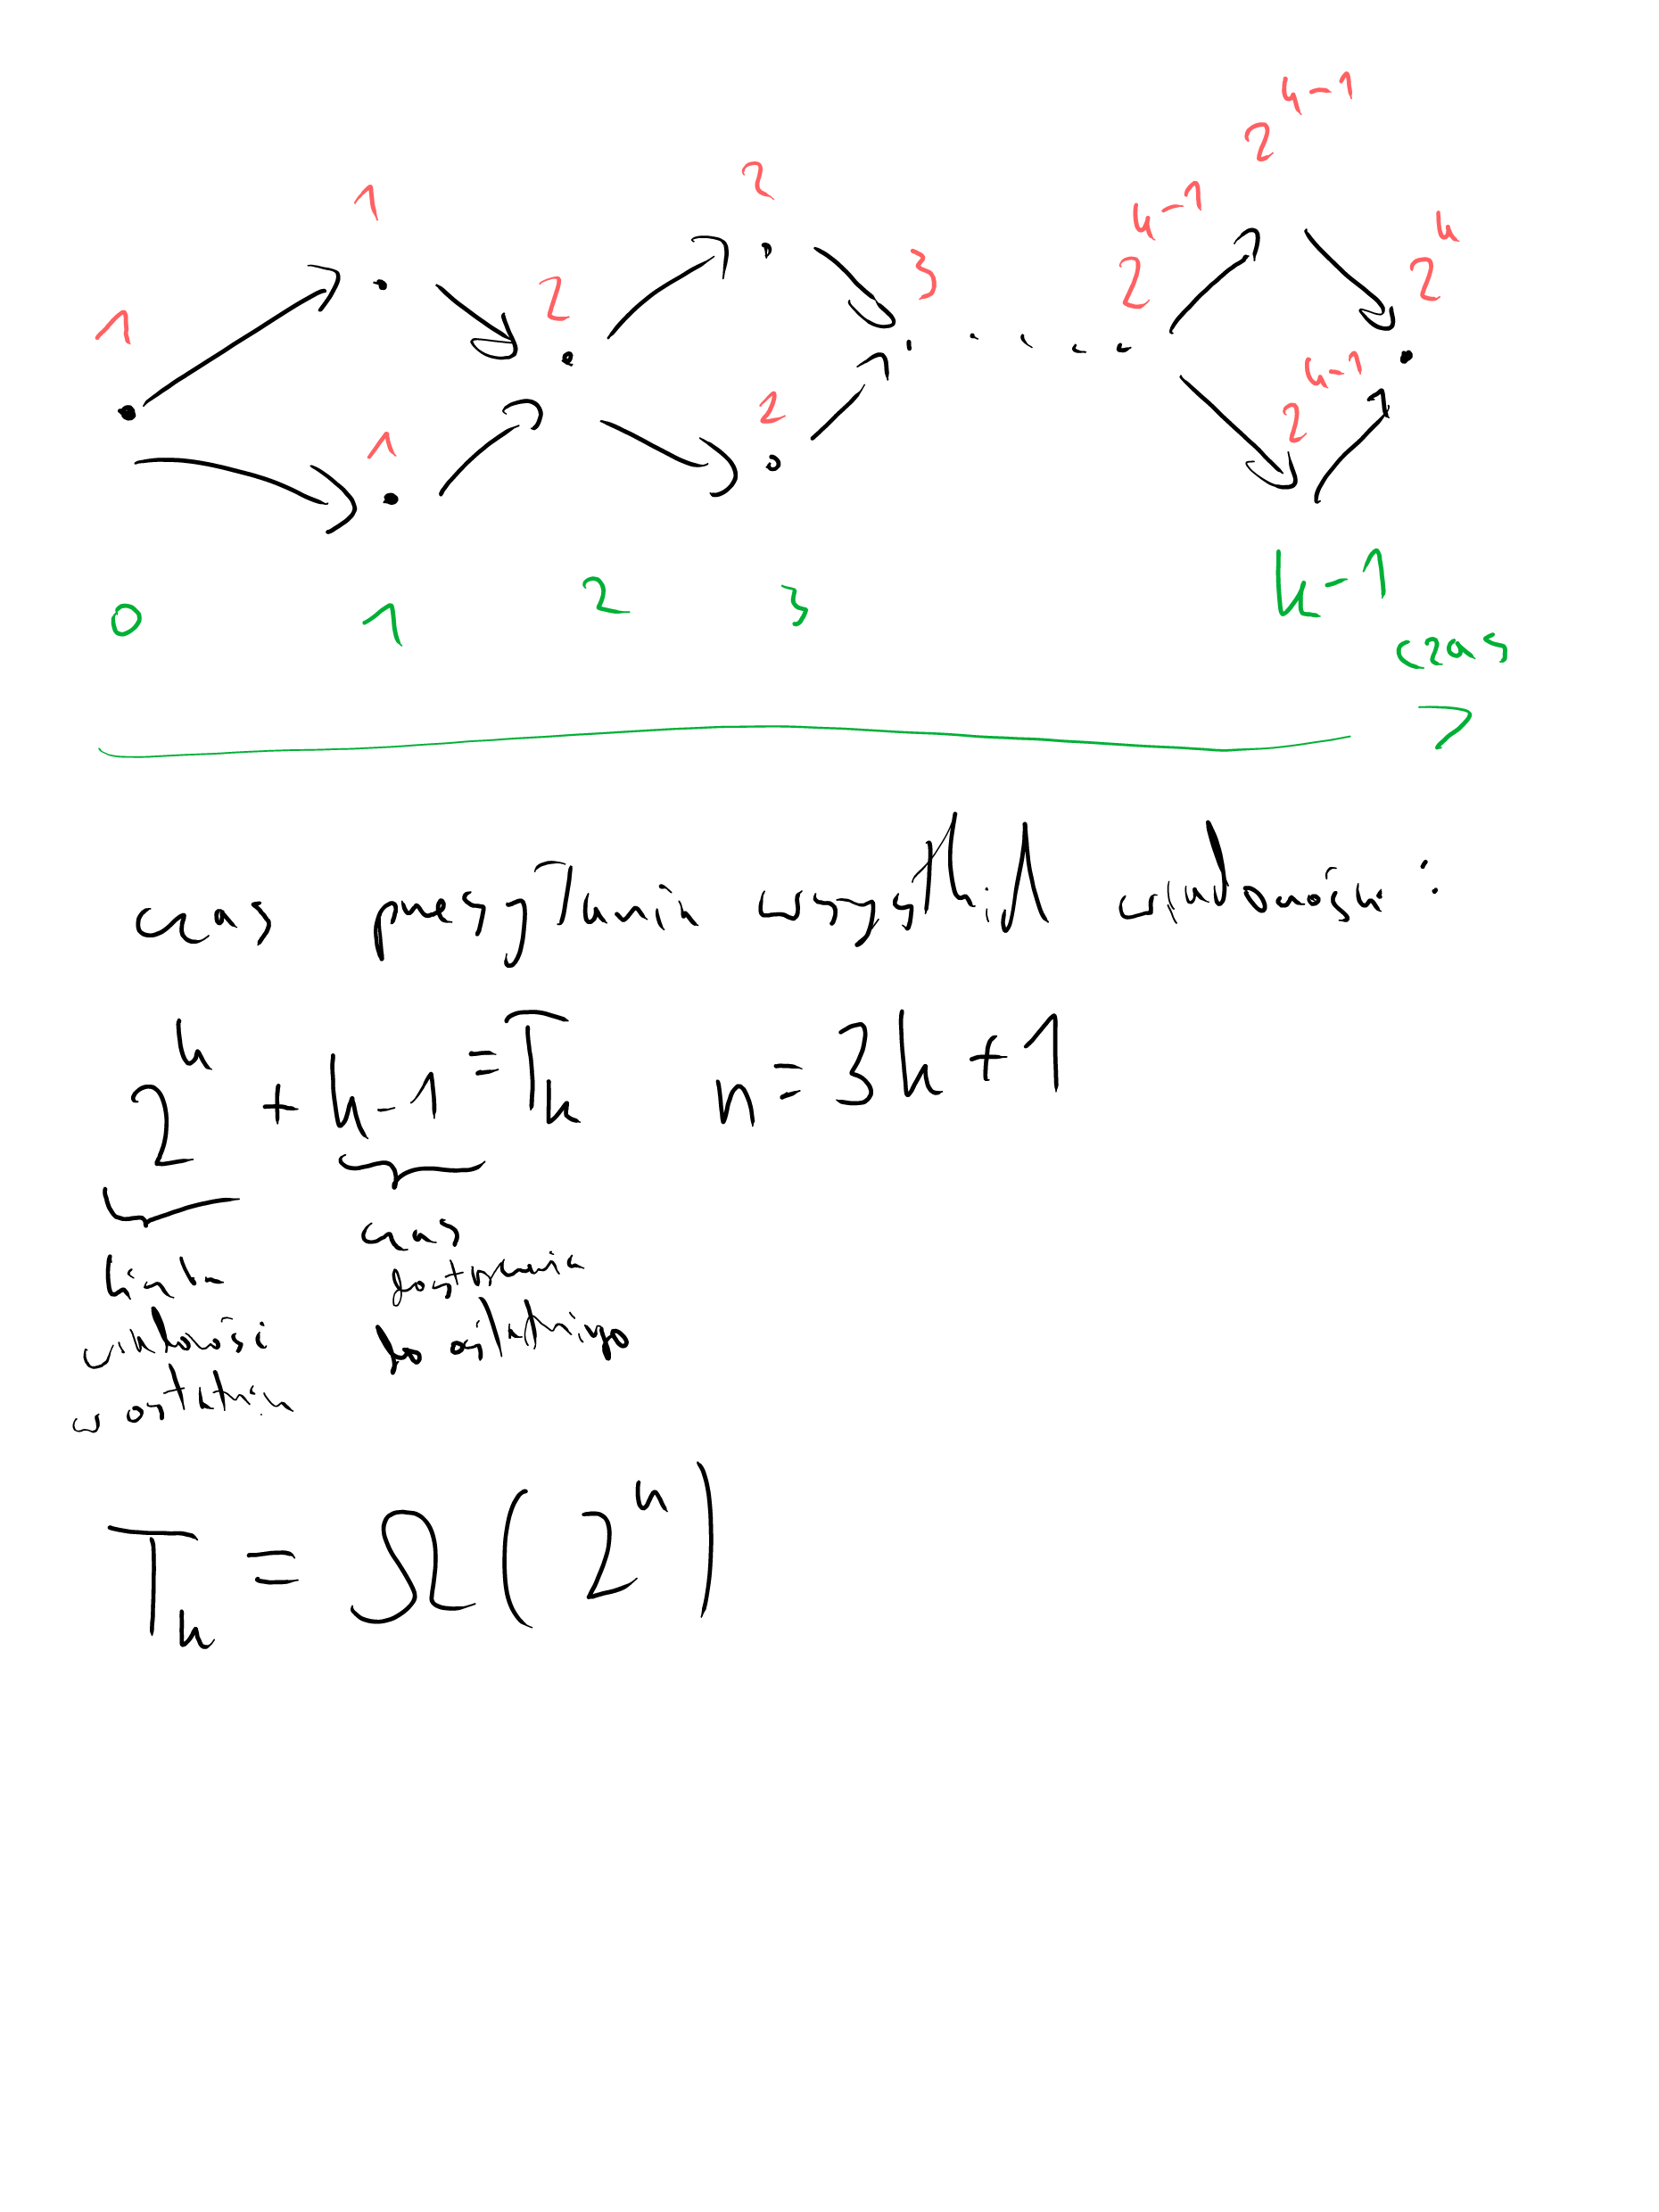 1 1 1 2 2 2 3 2^{k-1} 2^{k-1} 2^{k-1} 2^k
0 1 2 3 k-1
czas
czas przesyłania wszystkich wiadomości:
2^k + k-1 = T_k n = 3k+1
liczba czas
wiadomości dostarczania
w ostatnim do ostatniego
T_k = Ω(2^k)